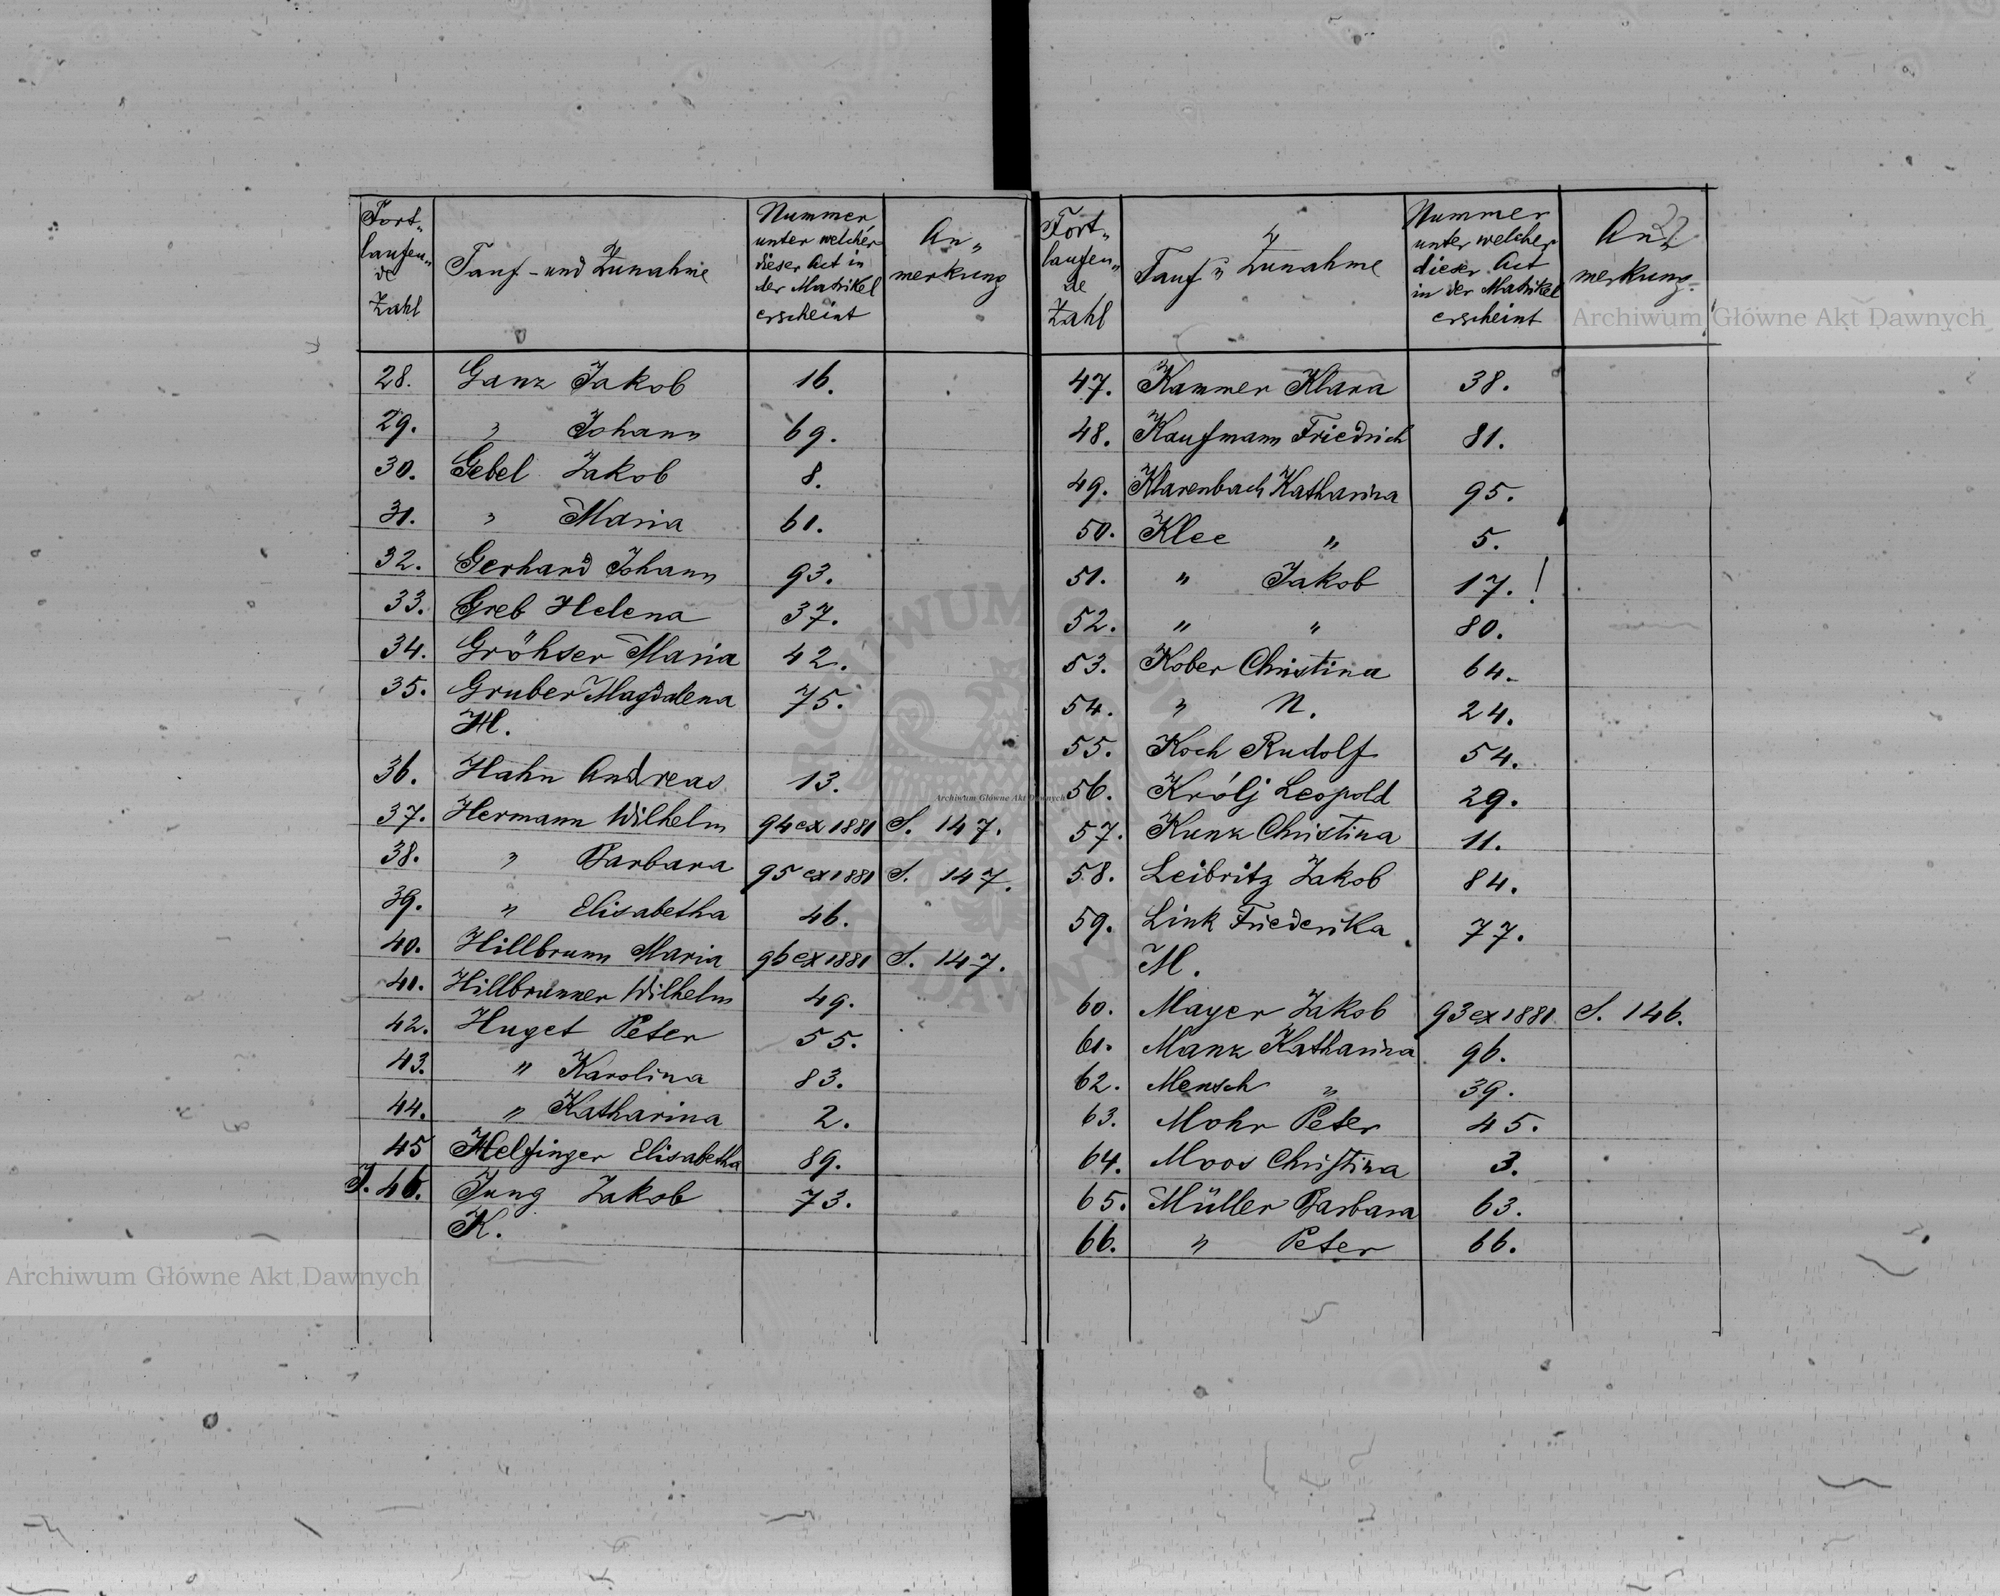 Fort-
laufen-
de
Zahl
Tauf- und Zunahme
Nummer
unter welcher
dieser Act in
der Matrikel
erscheint
An-
merkung
28. Ganz Jakob 16.
29. " Johann 69.
30. Gebel Jakob 8.
31. " Maria 61.
32. Gerhard Johann 93.
33. Greb Helena 37.
34. Gröhser Maria 42.
35. Gruber Magdalena 75.
H.
36. Hahn Andreas 13.
37. Hermann Wilhelm 94 ex 1881 S. 147.
38. " Barbara 95 ex 1881 S. 147.
39. " Elisabetha 46.
40. Hillbrunn Maria 96 ex 1881 S. 147.
41. Hillbrunner Wilhelm 49.
42. Huget Peter 55.
43. " Karolina 83.
44. " Katharina 2.
45 Helfinger Elisabetha 89.
J. 46. Jung Jakob 73.
K.
Fort-
laufen-
de
Zahl
Tauf u Zunahme
Nummer
unter welcher
dieser Act
in der Matrikel
erscheint
An-
merkung.
47. Kammer Klara 38.
48. Kaufmann Friedrich 81.
49. Klarenbach Katharina 95.
50. Klee " 5.
51. " Jakob 17. !
52. " " 80.
53. Kober Christina 64.
54. " N. 24.
55. Koch Rudolf 54.
56. Królj Leopold 29.
57. Kunz Christina 11.
58. Leibritz Jakob 84.
59. Link Friederika 77.
M.
60. Mayer Jakob 93 ex 1881 S. 146.
61. Manz Katharina 96.
62. Mensch " 39.
63. Mohr Peter 45.
64. Moos Christina 3.
65. Müller Barbara 63.
66. " Peter 66.
Archiwum Główne Akt Dawnych
Archiwum Główne Akt Dawnych
Archiwum Główne Akt Dawnych